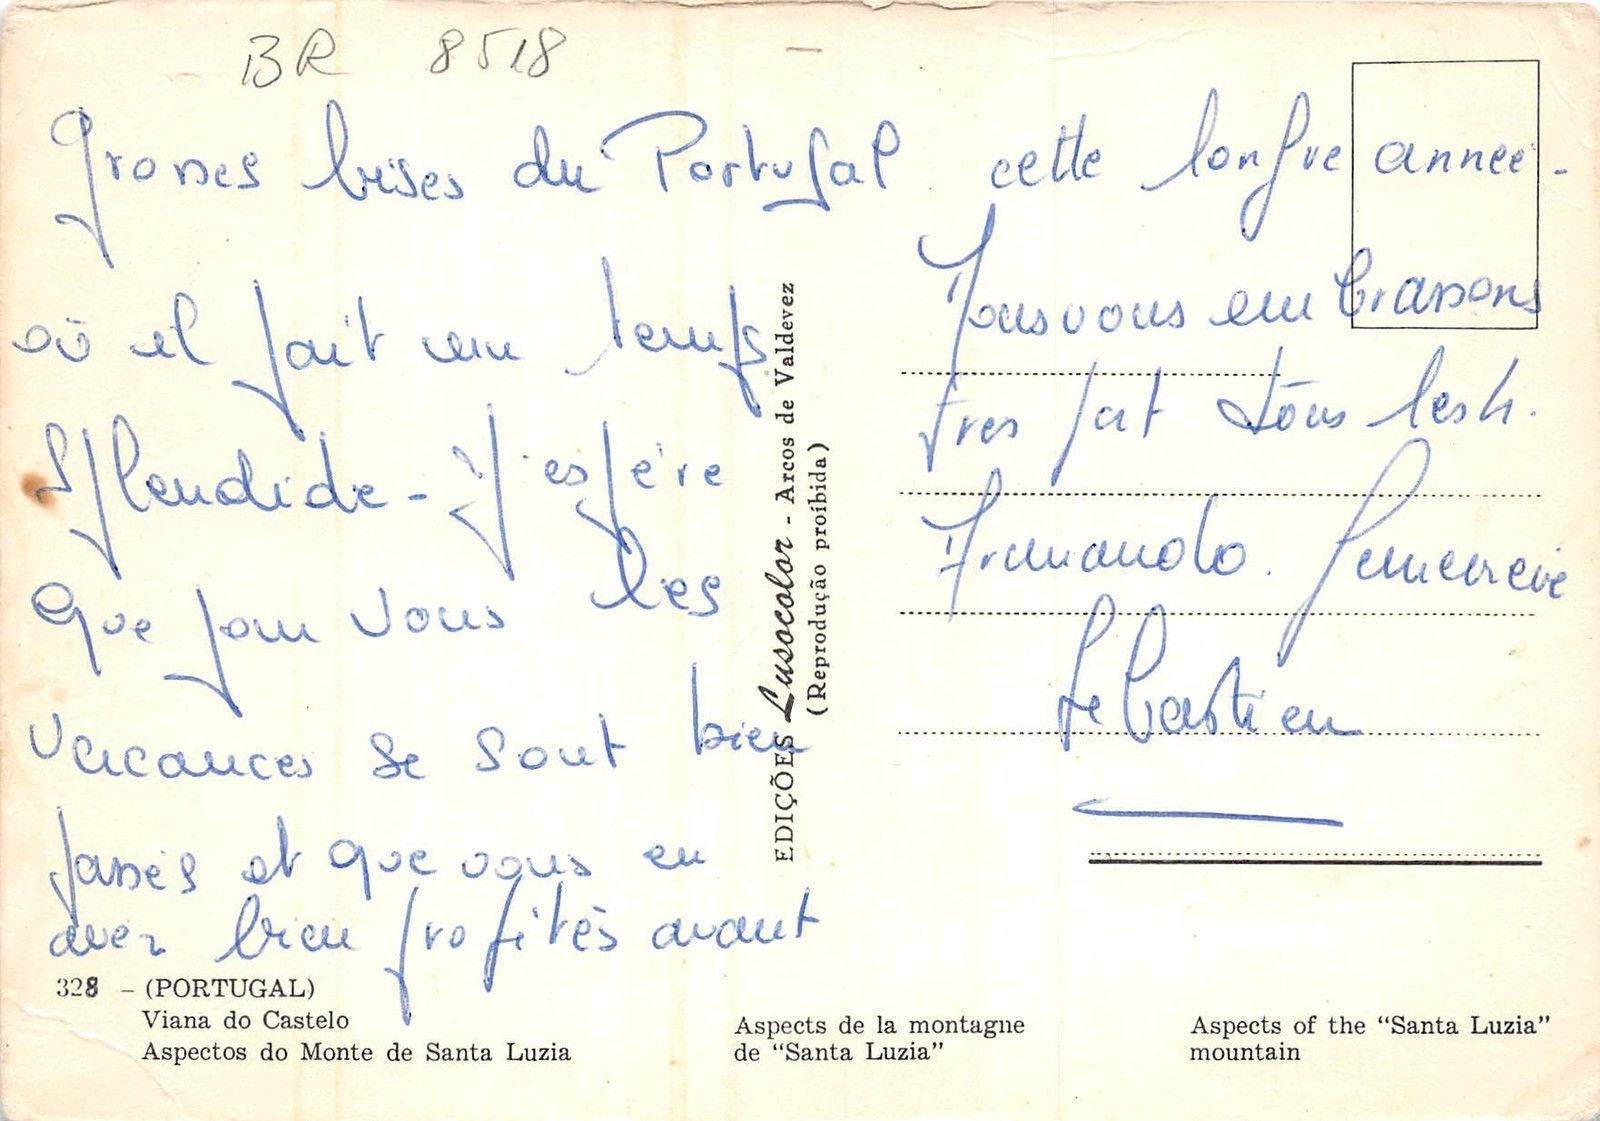 BR 8518
Grosses bises du Portugal
où il fait un temps
splendide - j'espère
que pour vous les
vacances se sont bien
passés et que vous en
avez bien profités avant
cette longue année.
Nous vous embrassons
tres fort tous les
Armando. Genevieve
Sebastien
EDIÇÕES Lusocolor - Arcos de Valdevez
(Reprodução proibida)
328 - (PORTUGAL)
Viana do Castelo
Aspectos do Monte de Santa Luzia
Aspects de la montagne
de "Santa Luzia"
Aspects of the "Santa Luzia"
mountain